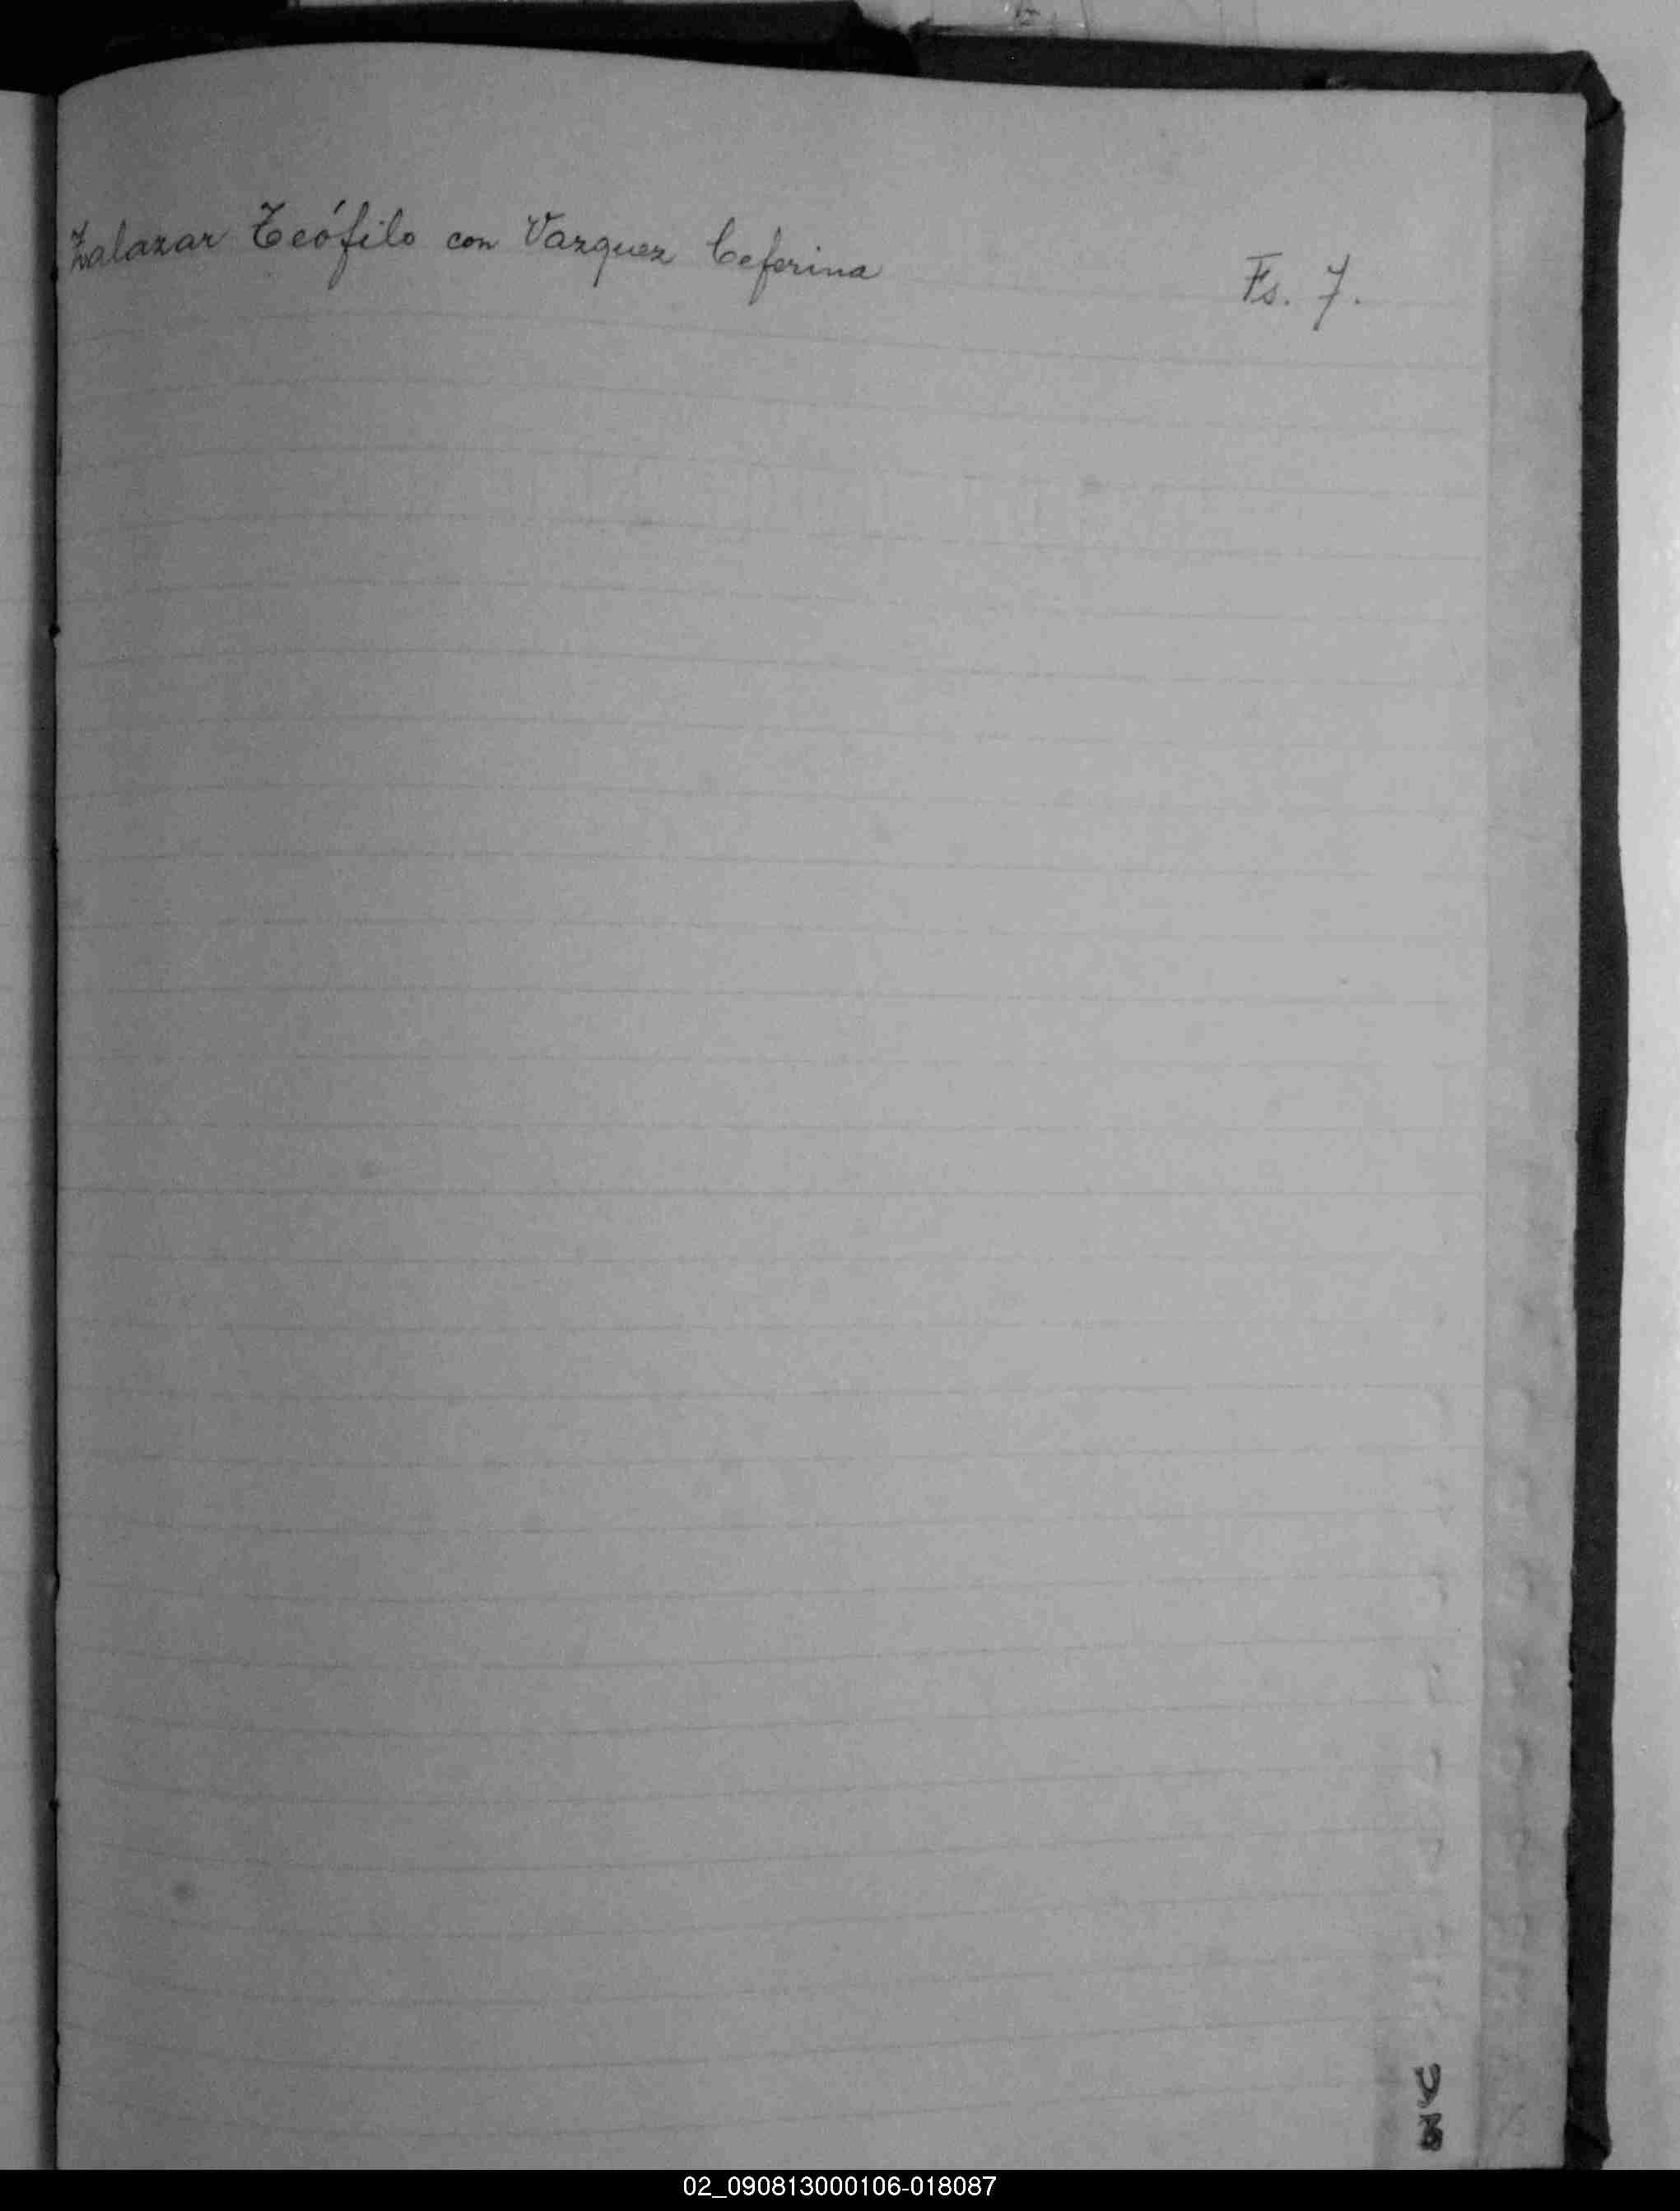 Zalazar Teófilo con Vazquez Ceferina Fs. 7.
02_090813000106-018087